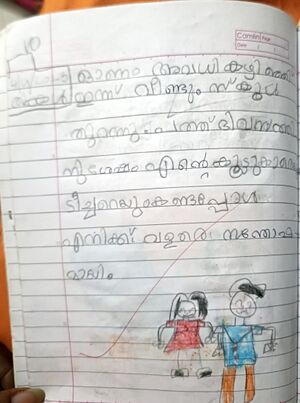 Camlin Page
Date
10
ഓണം അവധി കഴിഞ്ഞ്
ഇന്ന് വീണ്ടും സ്കൂൾ
തുറന്നു. പത്ത് ദിവസത്തി
നുശേഷം എന്റെ കൂട്ടുകാരെ
ടീച്ചറെയും കണ്ടപ്പോൾ
എനിക്ക് വളരെ സന്തോഷ
മായി.